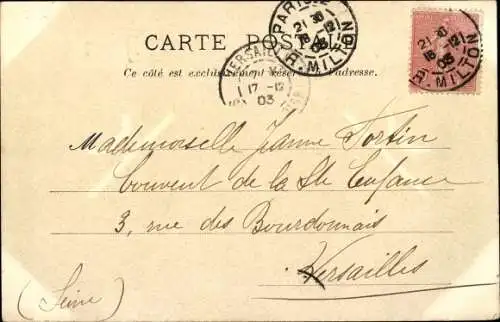 CARTE POSTALE
Ce côté est exclusivement réservé à l'adresse.
PARIS
21 30
18 -12
03
R. MILTON
21 30
18 -12
03
R. MILTON
VERSAILLES
17 -12
03
Mademoiselle Jeanne Fortin
Couvent de la Ste Enfance
3, rue des Bourdonnais
Versailles
(Seine)